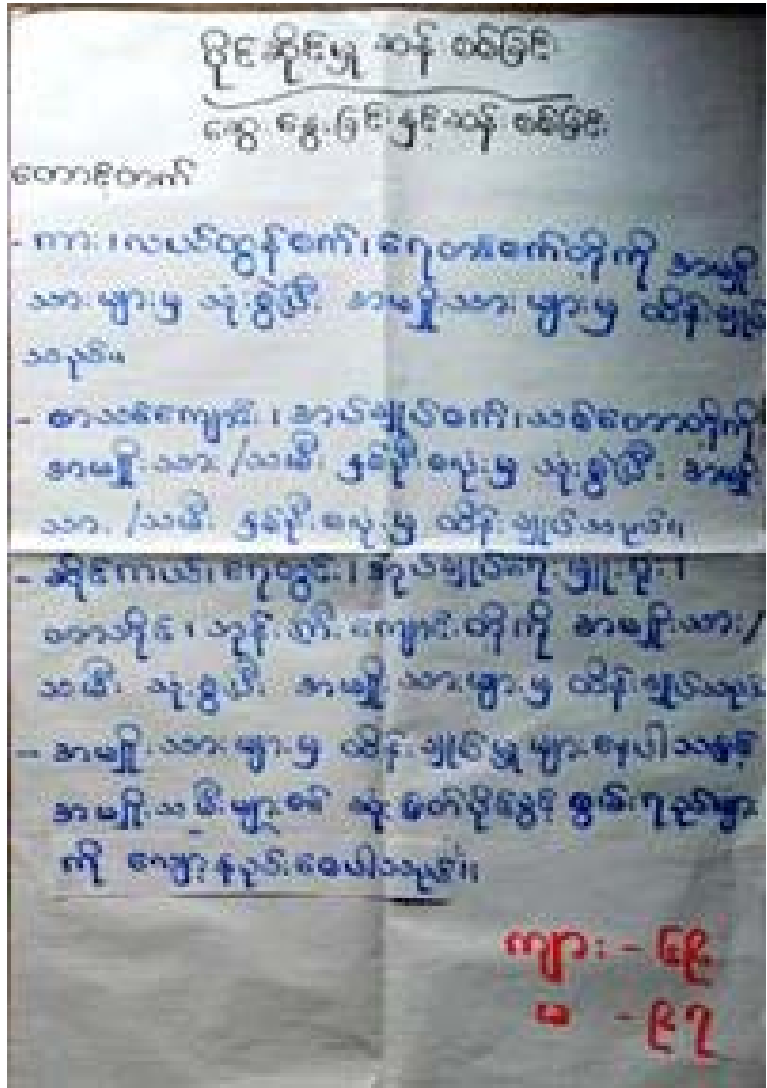 ပိုင်ဆိုင်မှု ဆန်းစစ်ခြင်း
ဆွေးနွေးခြင်းနှင့်ဆန်းစစ်ခြင်း
တောင့်တက်
- ကား၊ လယ်ထွန်စက်၊ ရေတင်စက်တို့ကို အမျိုး
သားများမှ သုံးစွဲပြီး အမျိုးသားများမှ ထိန်းချုပ်
သည်။
- စာသင်ကျောင်း၊ အပ်ချုပ်စက်၊ သစ်တောတို့ကို
အမျိုးသား/သမီး နှစ်ဦးစလုံးမှ သုံးစွဲပြီး အမျိုး
သား/သမီး နှစ်ဦးစလုံးမှ ထိန်းချုပ်သည်။
- ဆိုင်ကယ်၊ ရေတွင်း၊ အုပ်ချုပ်ရေးမှူးရုံး၊
ဘုန်းကြီးကျောင်းတို့ကို အမျိုးသား/
သမီး သုံးစွဲပြီး အမျိုးသားများမှ ထိန်းချုပ်သည်။
- အမျိုးသားများမှ ထိန်းချုပ်မှုများနေပါသဖြင့်
အမျိုးသမီးများ၏ ဆုံးဖြတ်ပိုင်ခွင့် စွမ်းရည်များ
ကို လျော့နည်းစေပါသည်။
ကျား - ၆၉
မ - ၉၇